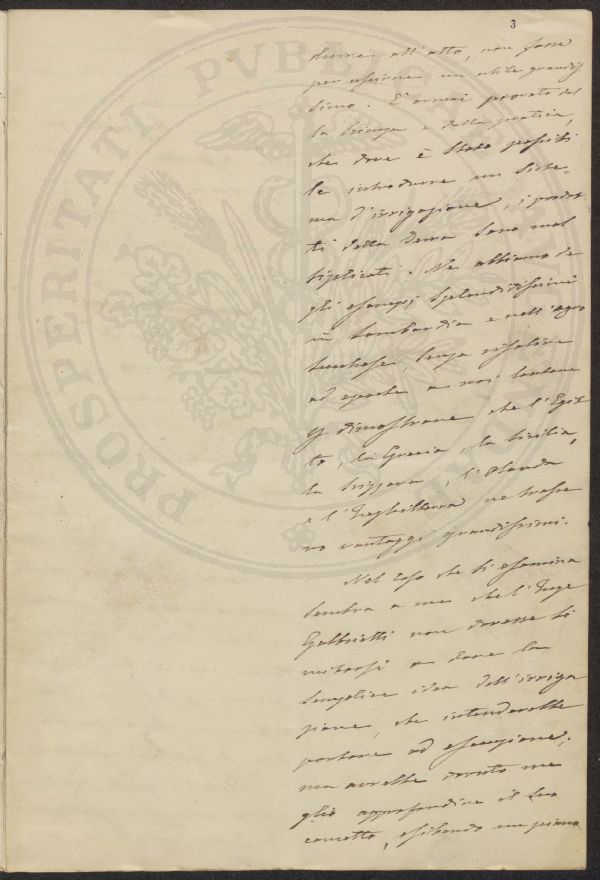 3
durre all'atto, non fosse
per essere un utile grandis
simo. È ormai provato dal
la scienza e dalla pratica,
che dove è stato possibi
le introdurre un siste-
ma d'irrigazione, i prodot
ti della terra sono mol
tiplicati. Noi abbiamo de
gli esempj splendidissimi
in Lombardia e nell'agro
lucchese, senza risalire
ad epoche a noi lontane
dimostrare che l'Egit
to, la Grecia, la Sicilia,
la Svizzera, l'Olanda
e l'Inghilterra ne trasse
ro vantaggi grandissimi.
Nel caso che si esamina
sembra a me che l'Inge
non dovesse li
mitarsi a dare la
semplice idea dell'irriga
zione, che intenderebbe
portare ad esecuzione,
ma avrebbe dovuto me
glio approfondire il suo
concetto, esibendo un piano
PROSPERITATI PVBLICAE